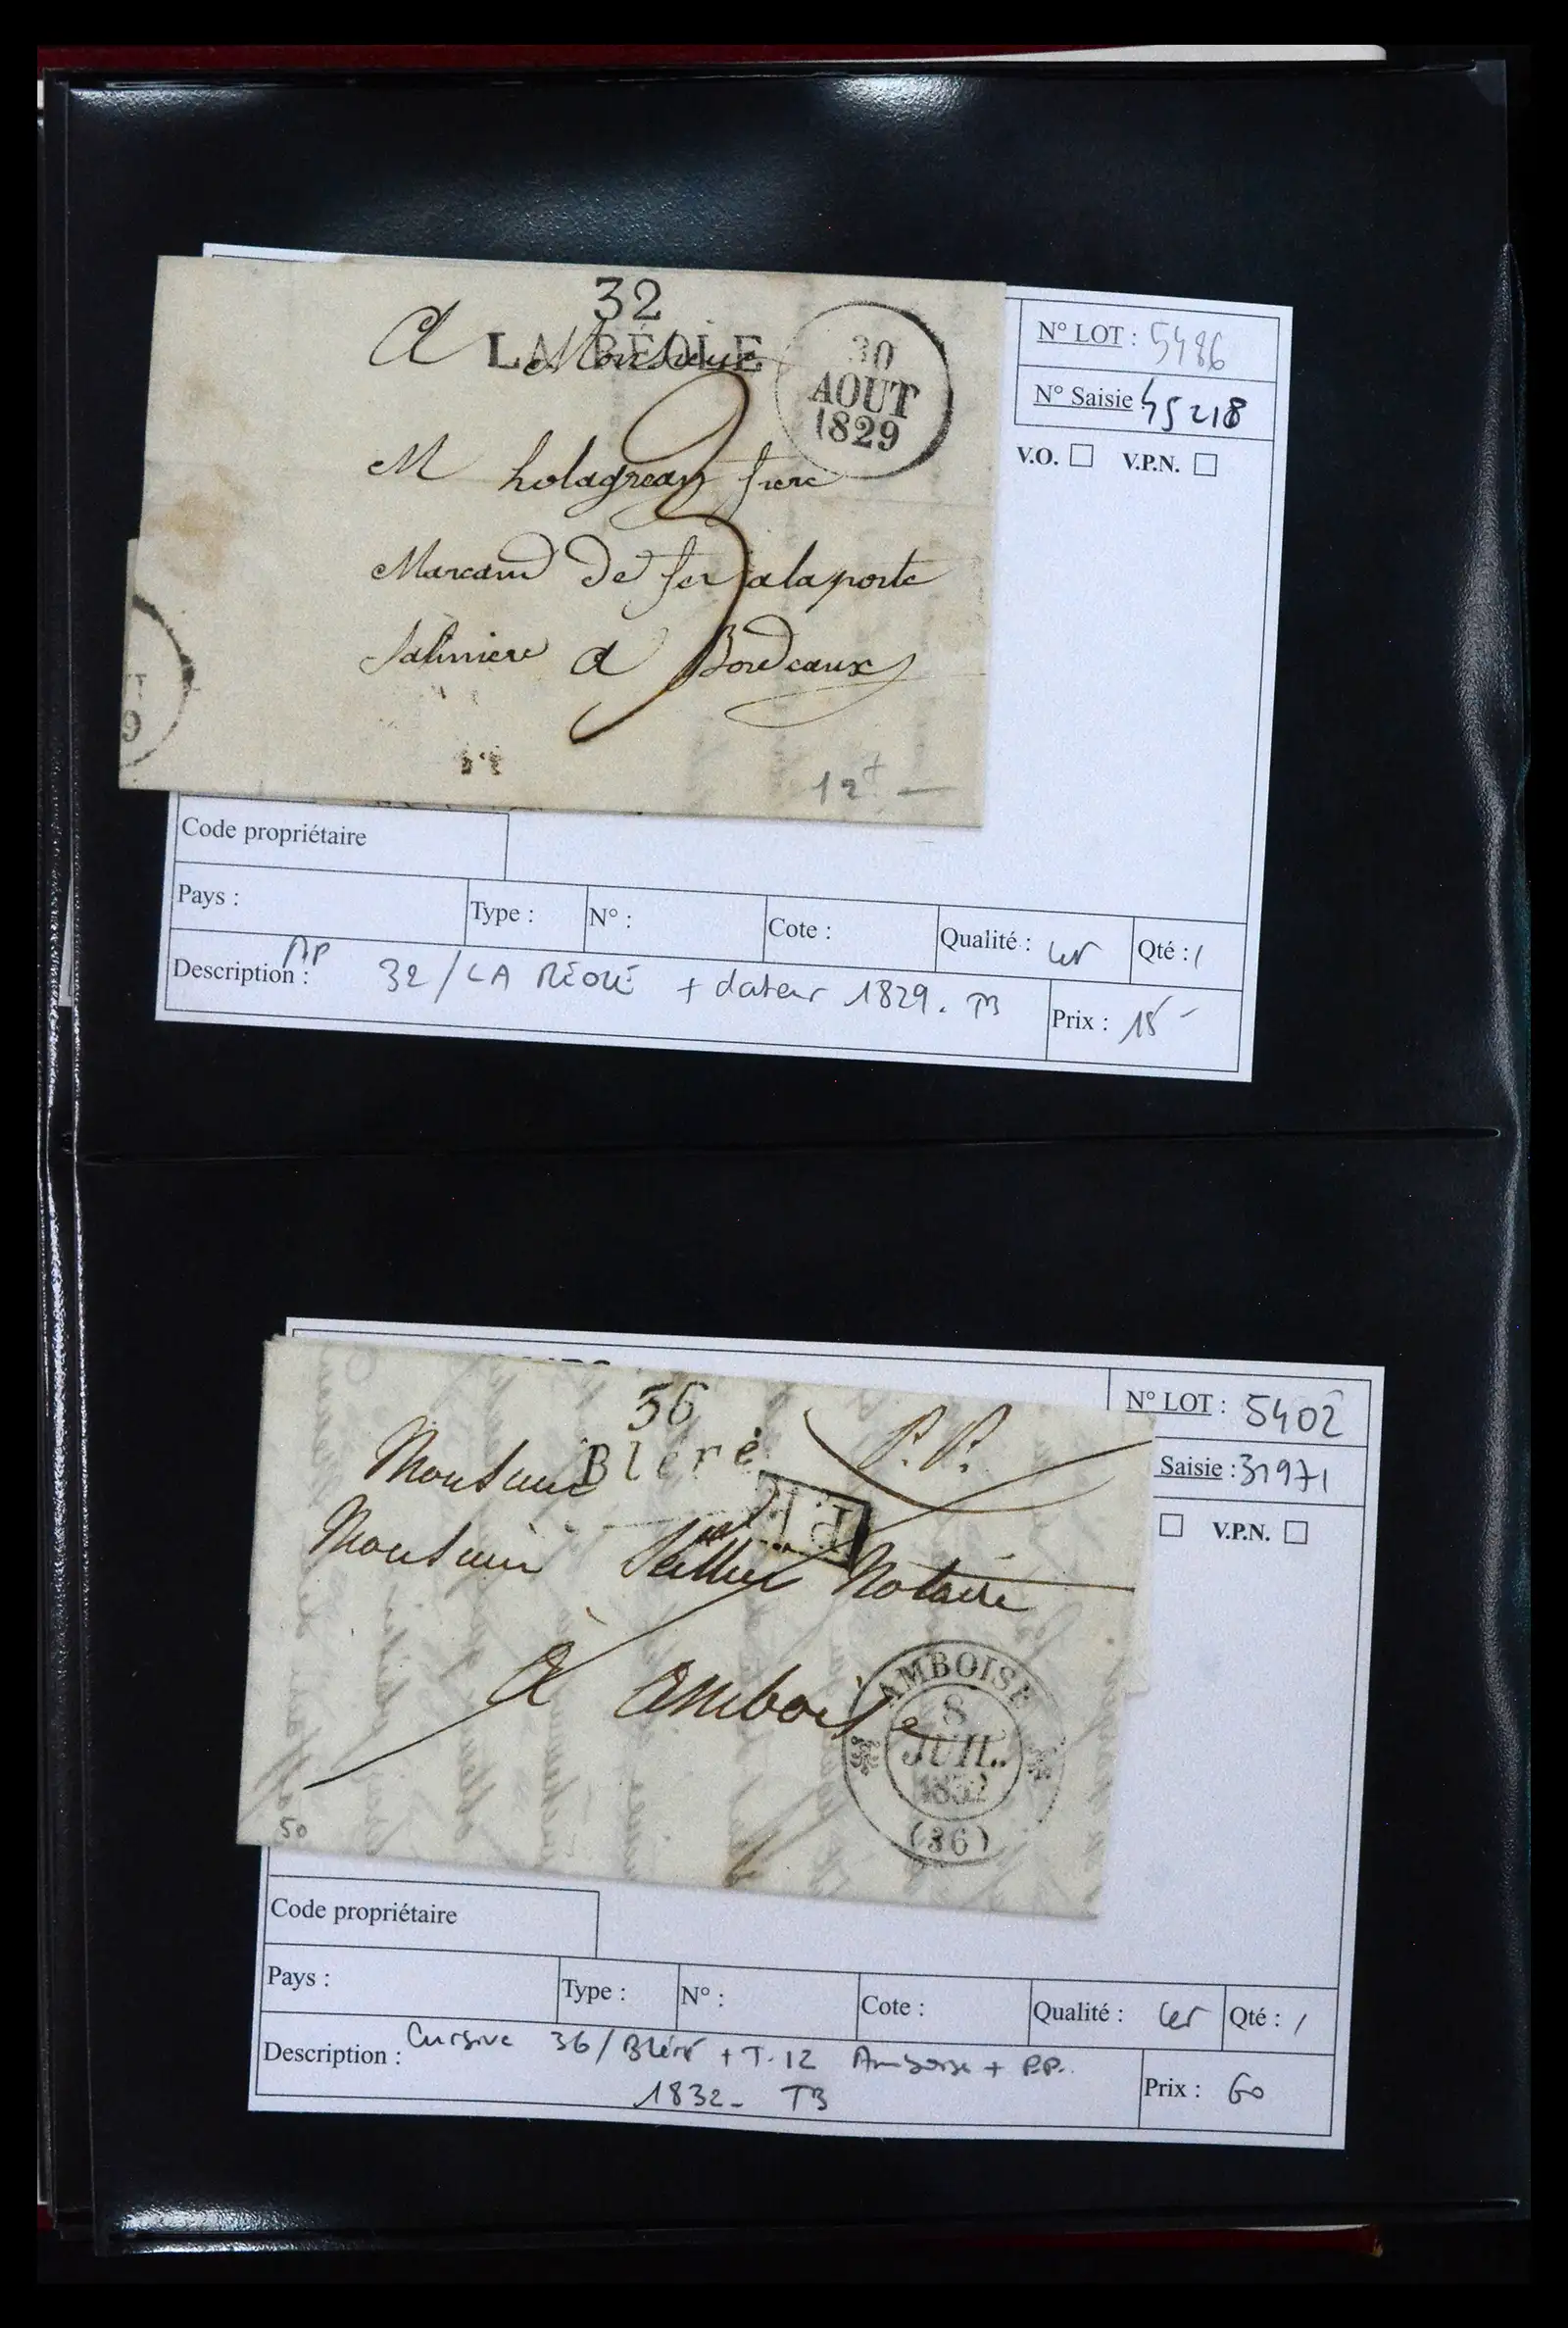 32
LA RÉOLE
A Monsieur
30
AOUT
1829
M holagreau frere
Marcand de fer a la porte
Saliniere a Bordeaux
3
9
12
N° LOT : 5486
N° Saisie 45218
V.O. V.P.N.
Code propriétaire
Pays :
Type :
N° :
Cote :
Qualité :
Qté : 1
Description : AP 32 / LA RÉOLE + dateur 1829. TB
Prix : 15 -
36
Bléré
P.P.
P.P.
Monsieur
Monsieur Notaire
à amboise
AMBOISE
8
JUIL.
1832
(36)
50
N° LOT : 5402
Saisie : 31971
V.P.N.
Code propriétaire
Pays :
Type :
N° :
Cote :
Qualité :
Qté : 1
Description : Cursive 36 / Bléré + T. 12 Amboise + P.P.
1832 - TB
Prix : 60